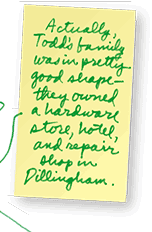 Actually,
Todd's family
was in pretty
good shape—
they owned
a hardware
store, hotel,
and repair
shop in
Dillingham.